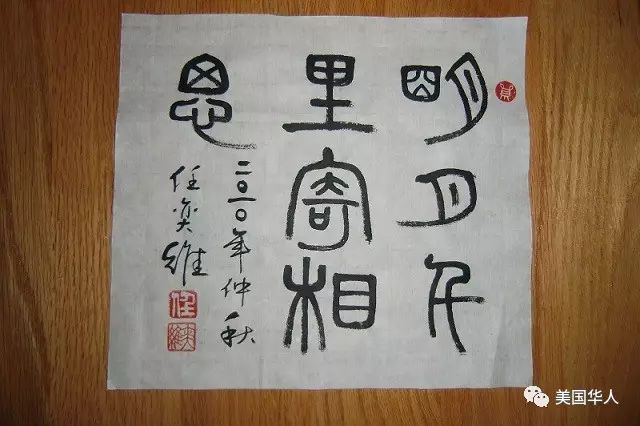 明月千
里寄相
思
二〇一〇年仲秋
任奕维
任
美国华人